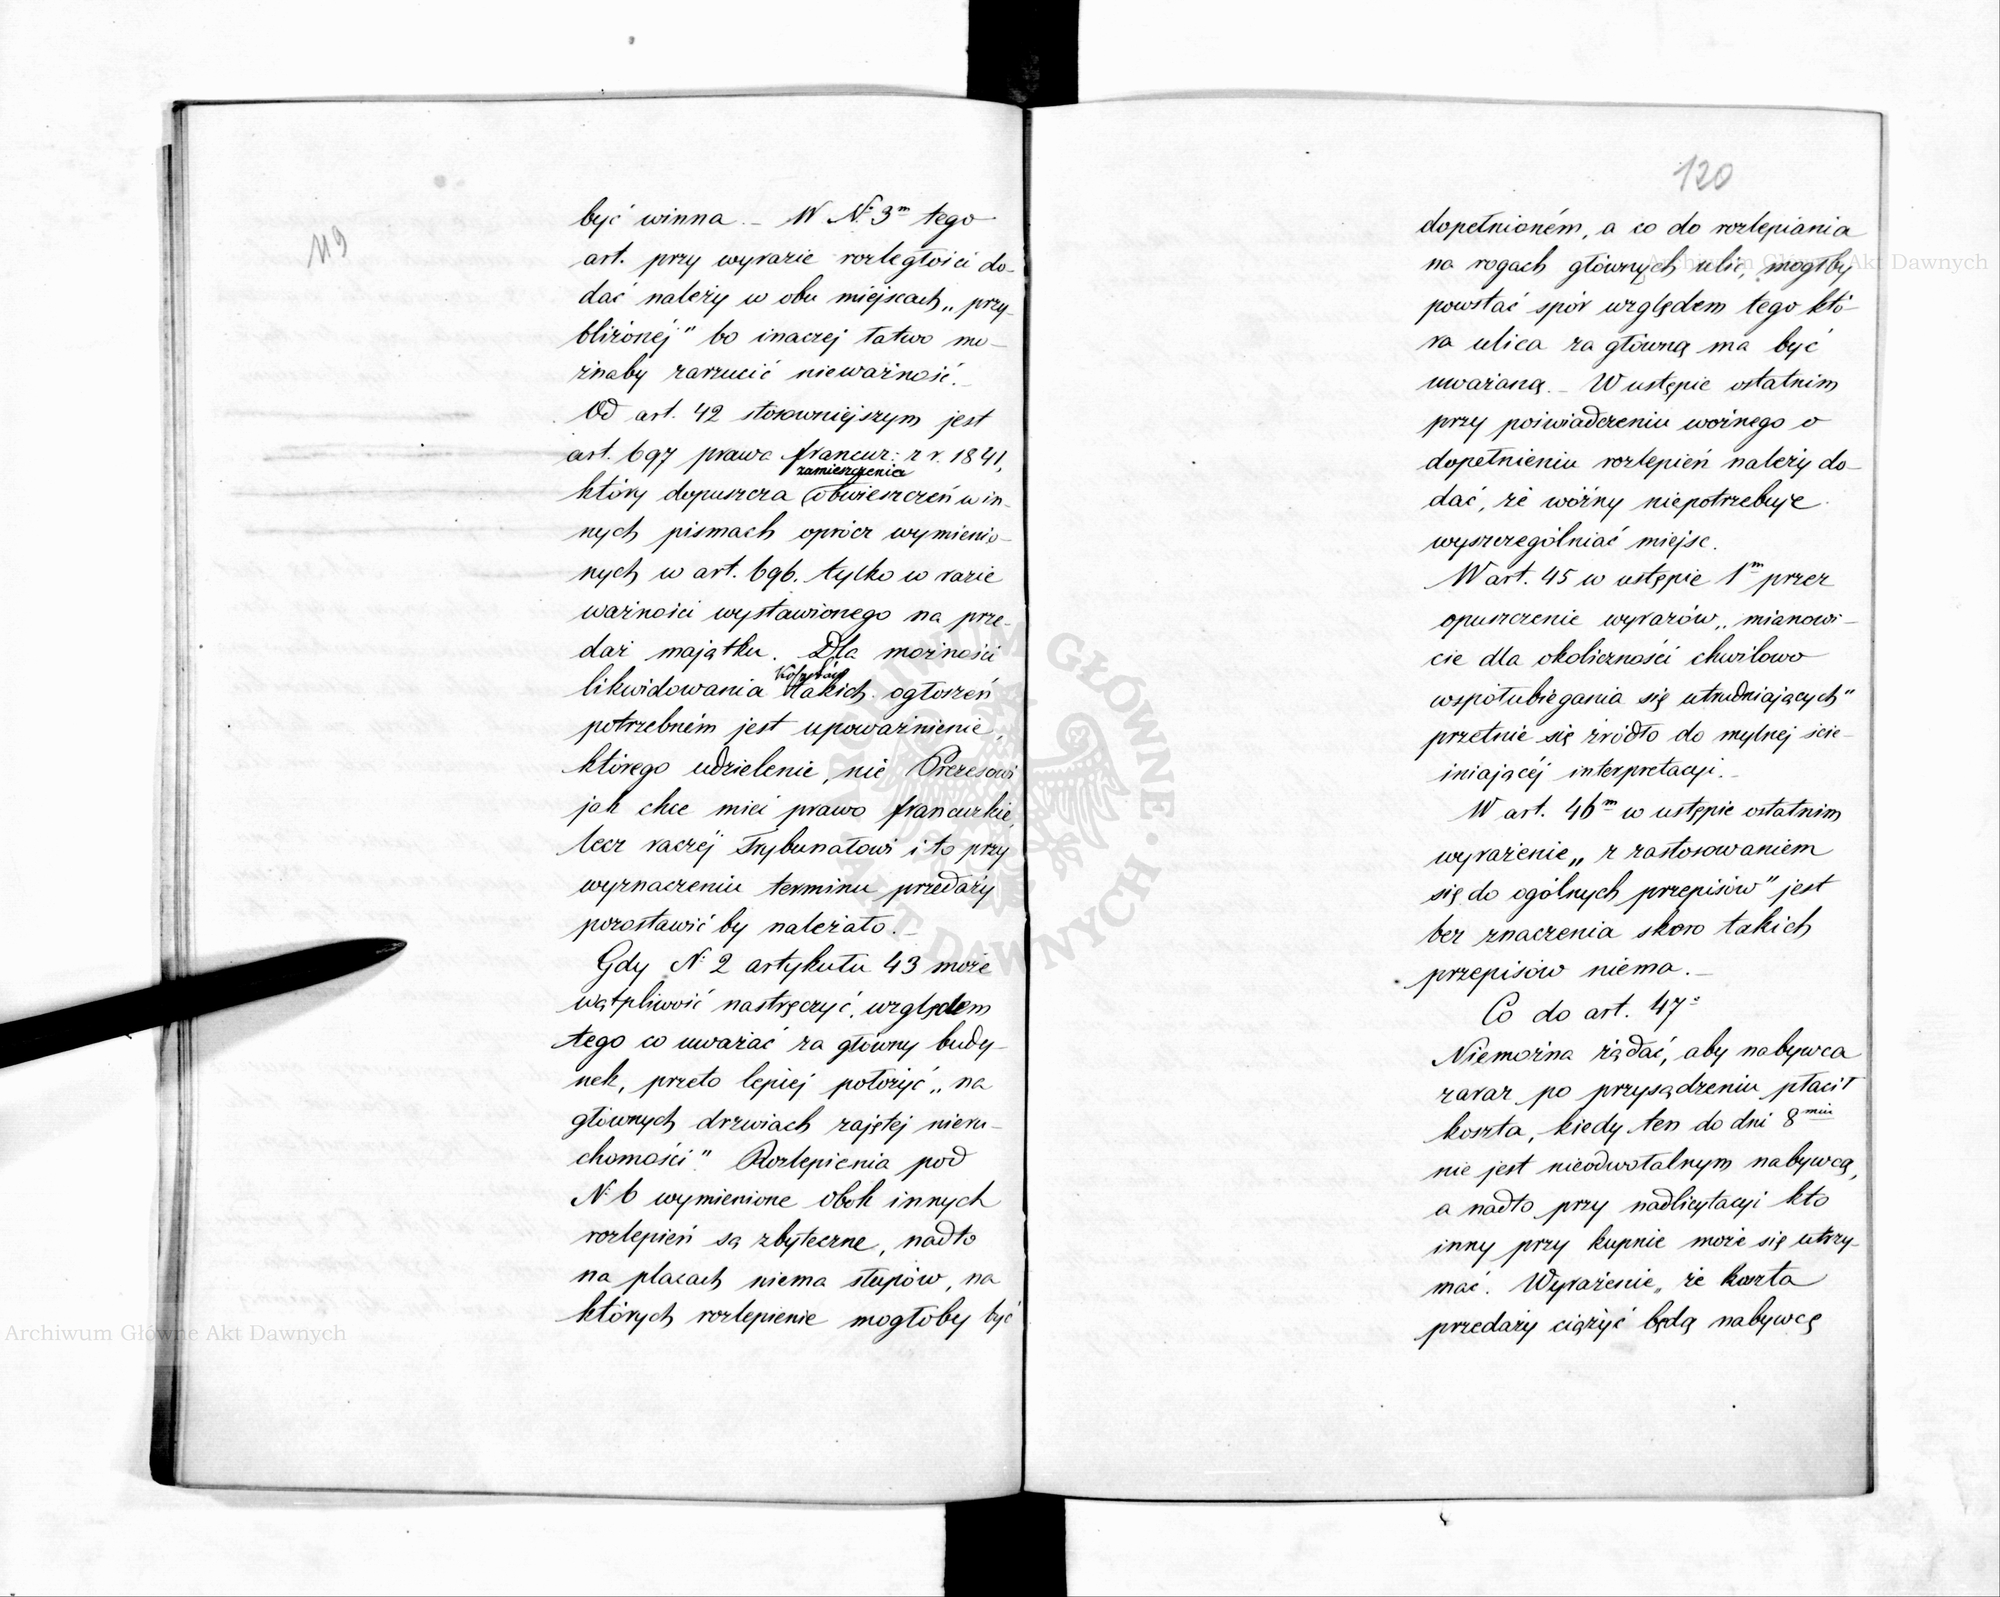 119
być winna. – W N: 3m tego
art. przy wyrazie rozległości do-
dać należy w obu miejscach „przy-
bliżonéj" bo inaczej łatwo mo-
żnaby zarzucić nieważność. –
Od art. 42 stosowniejszym jest
art. 697 prawa francuz: z r. 1841,
zamieszczenia
który dopuszcza obwieszczeń w in-
nych pismach oprócz wymienio-
nych w art. 696. tylko w razie
ważności wystawionego na prze-
daż majątku. Dla możności
kosztów
likwidowania takich ogłoszeń
potrzebném jest upoważnienie,
którego udzielenie, nie Prezesowi
jak chce mieć prawo francuzkie,
lecz raczéj Trybunałowi i to przy
wyznaczeniu terminu przedaży
pozostawić by należało. –
Gdy N: 2 artykułu 43 może
wątpliwość nastręczyć, względem
tego co uważać za główny budy-
nek, przeto lepiej położyć „na
głównych drzwiach zajętej nieru-
chomości". Rozlepienia pod
N: 6 wymienione obok innych
rozlepień są zbyteczne, nadto
na placach niema słupów, na
których rozlepienie mogłoby być
120
dopełnioném, a co do rozlepiania
na rogach głównych ulic, mógłby
powstać spór względem tego któ-
ra ulica za główną ma być
uważaną. – W ustępie ostatnim
przy poświadczeniu woźnego o
dopełnieniu rozlepień należy do-
dać, że wóźny niepotrzebuje
wyszczególniać miejsc.
W art. 45 w ustępie 1m przez
opuszczenie wyrazów „mianowi-
cie dla okoliczności chwilowo
współubiegania się utrudniających"
przetnie się źródło do mylnej ście-
śniającéj interpretacyi. –
W art. 46m w ustępie ostatnim
wyrażenie „z zastosowaniem
się do ogólnych przepisów" jest
bez znaczenia skoro takich
przepisów niema. –
Co do art. 47o
Niemożna żądać, aby nabywca
zaraz po przysądzeniu płacił
koszta, kiedy ten do dni 8miu
nie jest nieodwołalnym nabywcą,
a nadto przy nadlicytacyi kto
inny przy kupnie może się utrzy-
mać. Wyrażenie „że koszta
przedaży ciążyć będą nabywcę
Archiwum Główne Akt Dawnych
Archiwum Główne Akt Dawnych
ARCHIWUM GŁÓWNE · AKT DAWNYCH ·